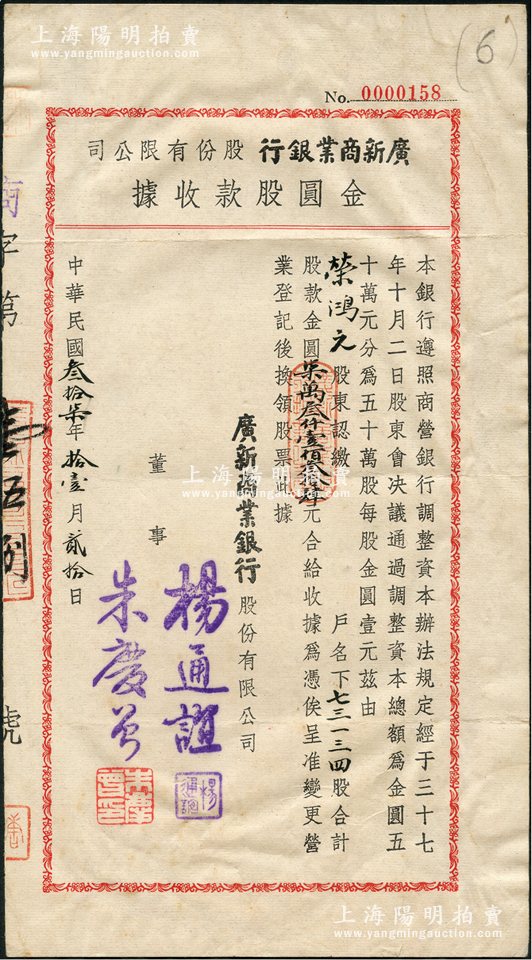 上海陽明拍賣
www.yangmingauction.com
(6)
No. 0000158
廣新商業銀行股份有限公司
金圓股款收據
本銀行遵照商營銀行調整資本辦法規定經于三十七
年十月二日股東會決議通過調整資本總額為金圓五
十萬元分為五十萬股每股金圓壹元茲由
榮鴻元股東認繳戶名下七三一三四股合計
股款金圓柒萬叁仟壹佰叁拾肆元合給收據為憑俟呈准變更營
業登記後換領股票此據
廣新商業銀行股份有限公司
董事
楊通誼
朱慶曾
楊通誼
朱慶曾
中華民國叁拾柒年拾壹月貳拾日
商字第
號
上海陽明拍賣
www.yangmingauction.com
上海陽明拍賣
www.yangmingauction.com